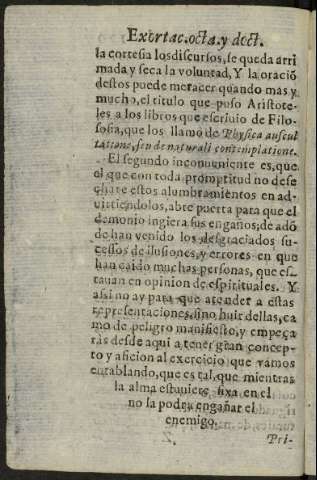 Exortac.octa.y doct.
la cortesia los discursos, se queda arri
mada y seca la voluntad, Y la oració
destos puede merecer quando mas y
mucho, el titulo que puso Aristote-
les a los libros que escriuio de Filo-
sofia, que los llamò de Physica auscul
tatione, seu de naturali contemplatione.
El segundo inconueniente es, que
el que con toda promptitud no dese
chare estos alumbramientos en ad-
uirtiendolos, abre puerta para que el
demonio ingiera sus engaños, de adó
de han venido los desgraciados su-
cessos de ilusiones, y errores en que
han caido muchas personas, que es-
tauan en opinion de espirituales. Y
assi no ay para que atender a estas
representaciones, sino huir dellas, ca
mo de peligro manifiesto, y empeça
ràs desde aqui a tener gran concep-
to y aficion al exercicio que vamos
entablando, que es tal, que mientras
la alma estuuiere fixa en el
no la podra engañar el
enemigo.
Pri-